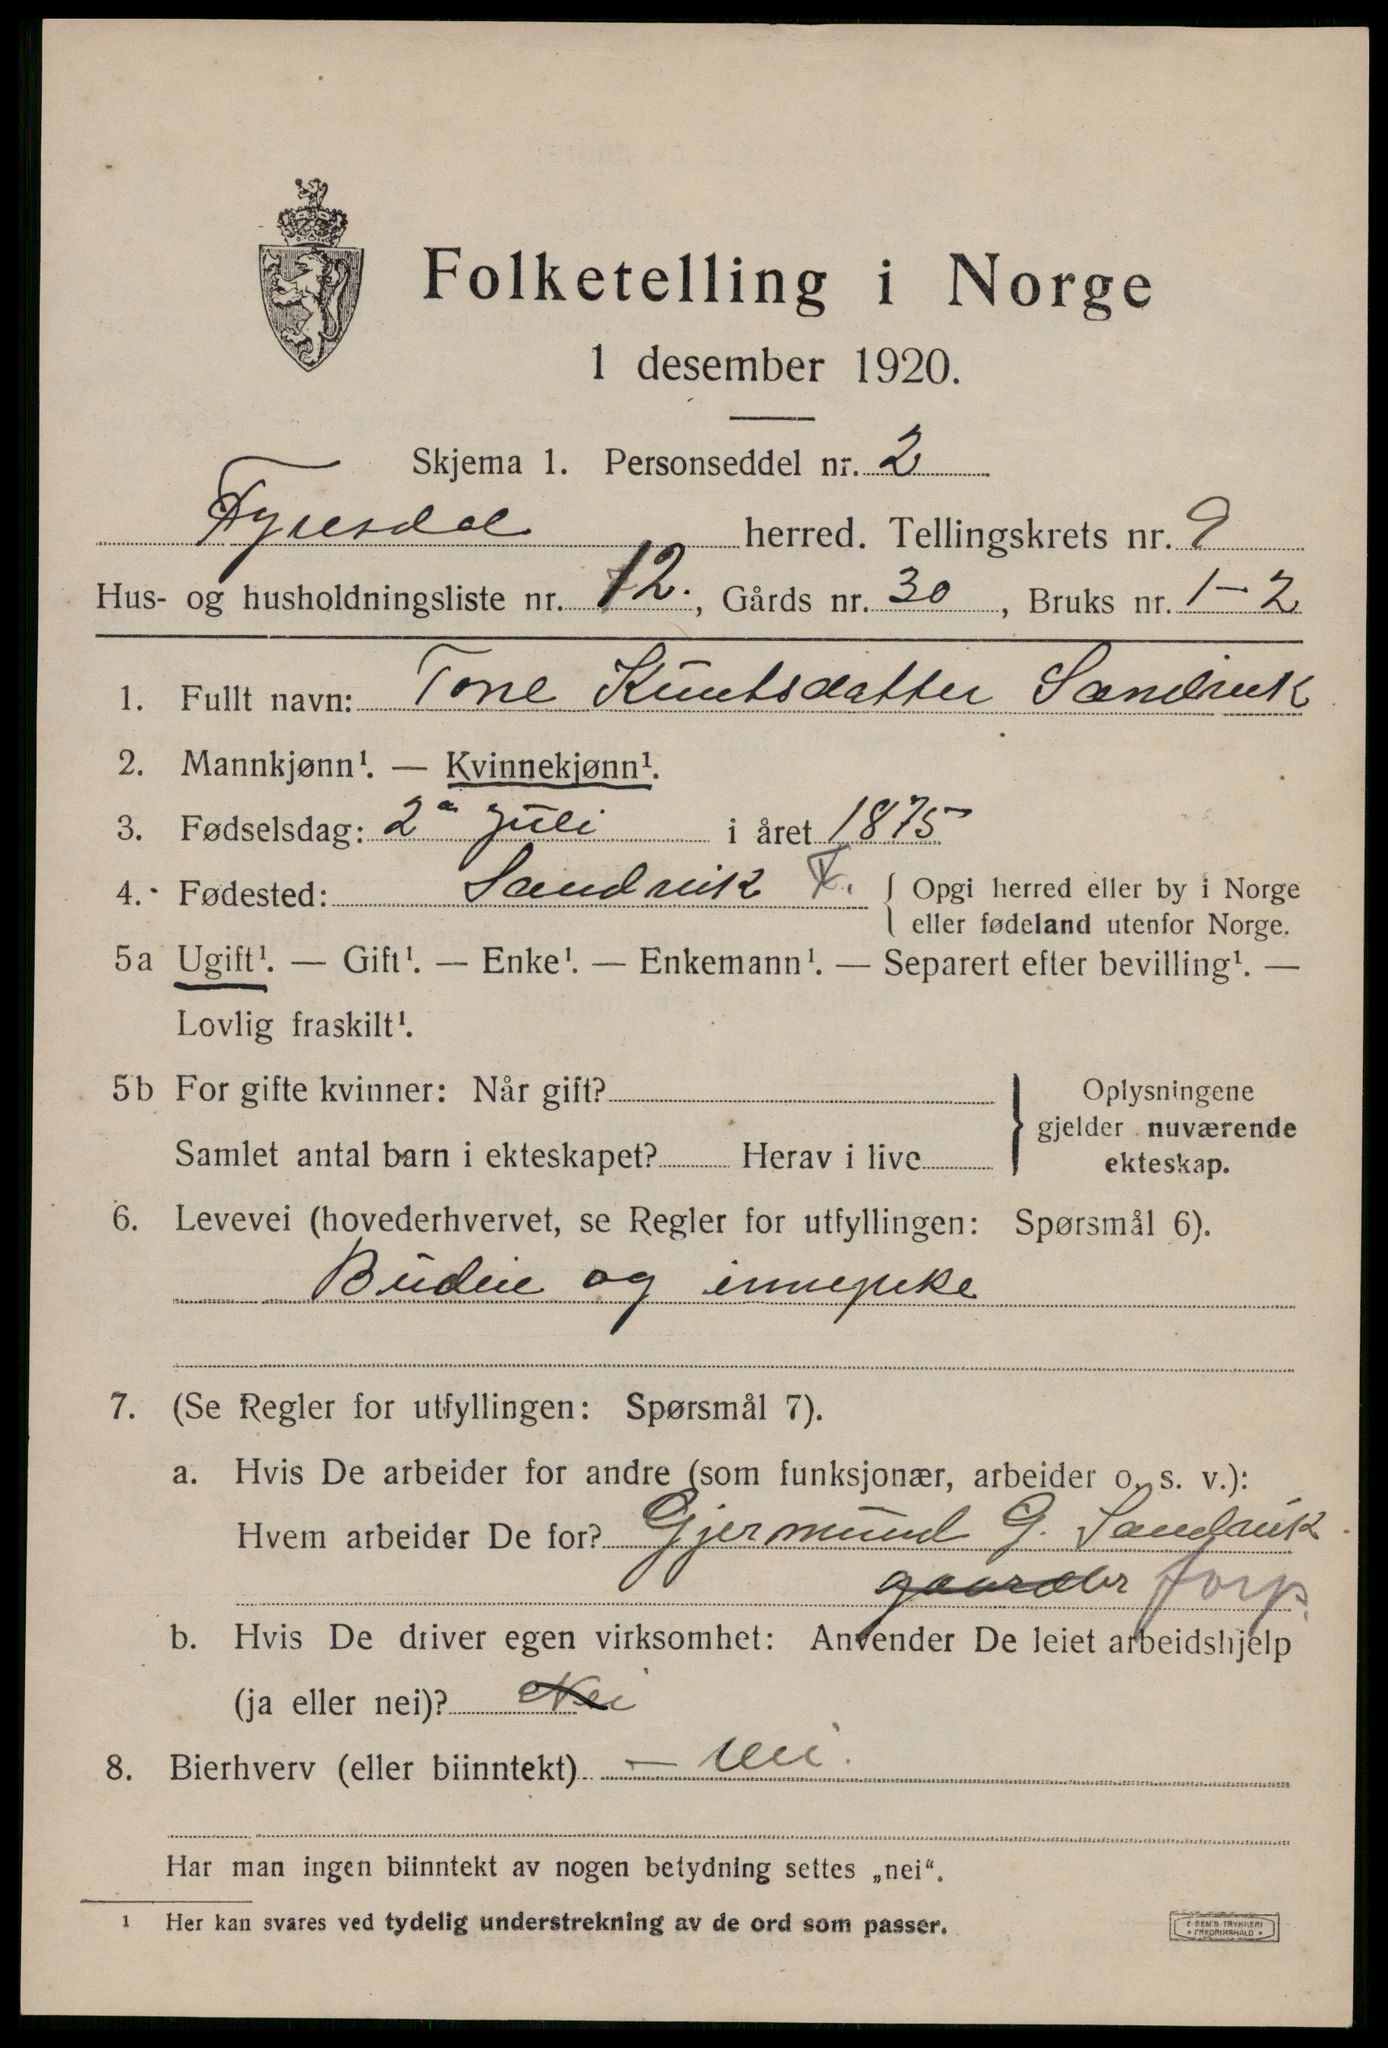 Folketelling i Norge
1 desember 1920.
Skjema 1. Personseddel nr. 2
Fyresdal herred. Tellingskrets nr. 9
Hus- og husholdningsliste nr. 12., Gårds nr. 30, Bruks nr. 1-2
1. Fullt navn: Tone Knutsdatter Sandvik
2. Mannkjønn¹. — Kvinnekjønn¹.
3. Fødselsdag: 2 juli i året 1875
4. Fødested: Sandvik F. { Opgi herred eller by i Norge
eller fødeland utenfor Norge.
5a Ugift¹. — Gift¹. — Enke¹. — Enkemann¹. — Separert efter bevilling¹. —
Lovlig fraskilt¹.
5b For gifte kvinner: Når gift? Oplysningene
gjelder nuværende
Samlet antal barn i ekteskapet? Herav i live
ekteskap.
6. Levevei (hovederhvervet, se Regler for utfyllingen: Spørsmål 6).
Budeie og innepike
7. (Se Regler for utfyllingen: Spørsmål 7).
a. Hvis De arbeider for andre (som funksjonær, arbeider o. s. v.):
Hvem arbeider De for? Gjermund G. Sandvik
forp.
b. Hvis De driver egen virksomhet: Anvender De leiet arbeidshjelp
(ja eller nei)? Nei
8. Bierhverv (eller biinntekt) — nei.
Har man ingen biinntekt av nogen betydning settes „nei“.
¹ Her kan svares ved tydelig understrekning av de ord som passer.
E. SEM'S TRYKKERI
* FREDRIKSHALD *